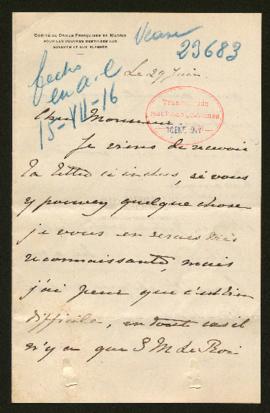 COMITÉ DE DAMES FRANÇAISES DE MADRID
POUR LES OEUVRES DESTINÉES AUX
SOLDATS ET AUX BLESSÉS
23683
fecho
en a.c
15-VII-16
Le 29 Juin
Cher Monsieur
Je viens de recevoir
la lettre ci incluse, si vous
y pouvez quelque chose
je vous en serais très
reconnaissante, mais
j'ai peur que c'est bien
difficile, en tout cas il
n'y a que S. M. le Roi